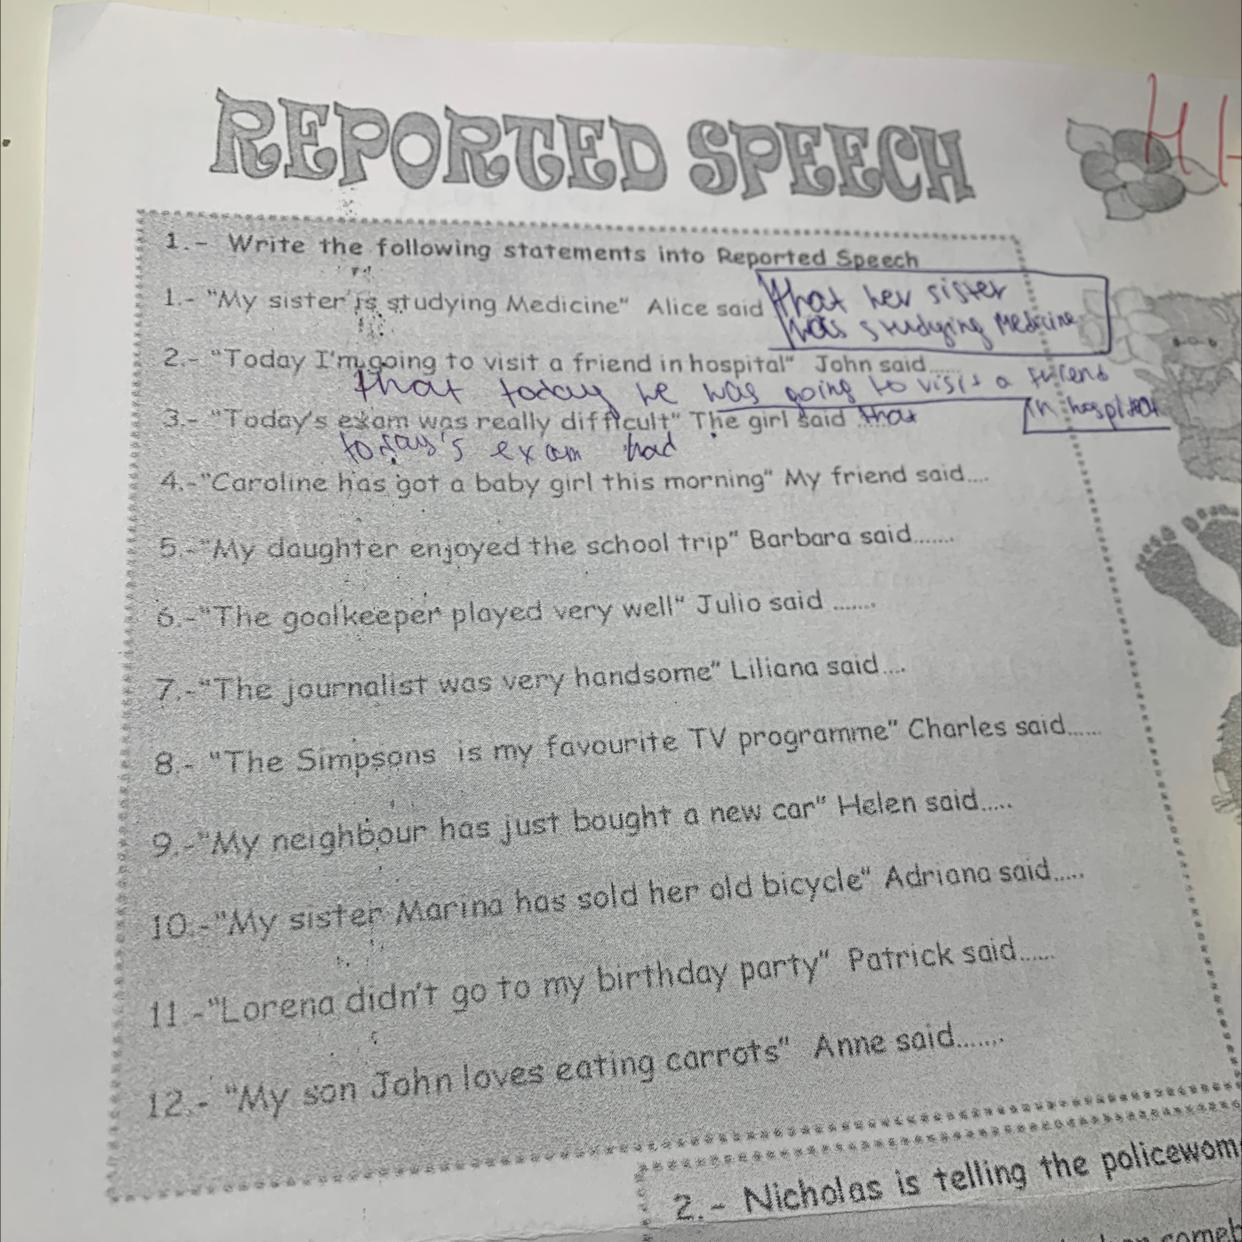 REPORTED SPEECH
1.- Write the following statements into Reported Speech
1.- "My sister is studying Medicine" Alice said that her sister
was studying Medicine
2.- "Today I'm going to visit a friend in hospital" John said.....
that today he was going to visit a friend
in hospital
3.- "Today's exam was really difficult" The girl said that
today's exam had
4.-"Caroline has got a baby girl this morning" My friend said....
5.-"My daughter enjoyed the school trip" Barbara said.......
6.-"The goalkeeper played very well" Julio said .......
7.-"The journalist was very handsome" Liliana said....
8.- "The Simpsons is my favourite TV programme" Charles said......
9.-"My neighbour has just bought a new car" Helen said.....
10.-"My sister Marina has sold her old bicycle" Adriana said.....
11.-"Lorena didn't go to my birthday party" Patrick said......
12.- "My son John loves eating carrots" Anne said.......
2.- Nicholas is telling the policewom